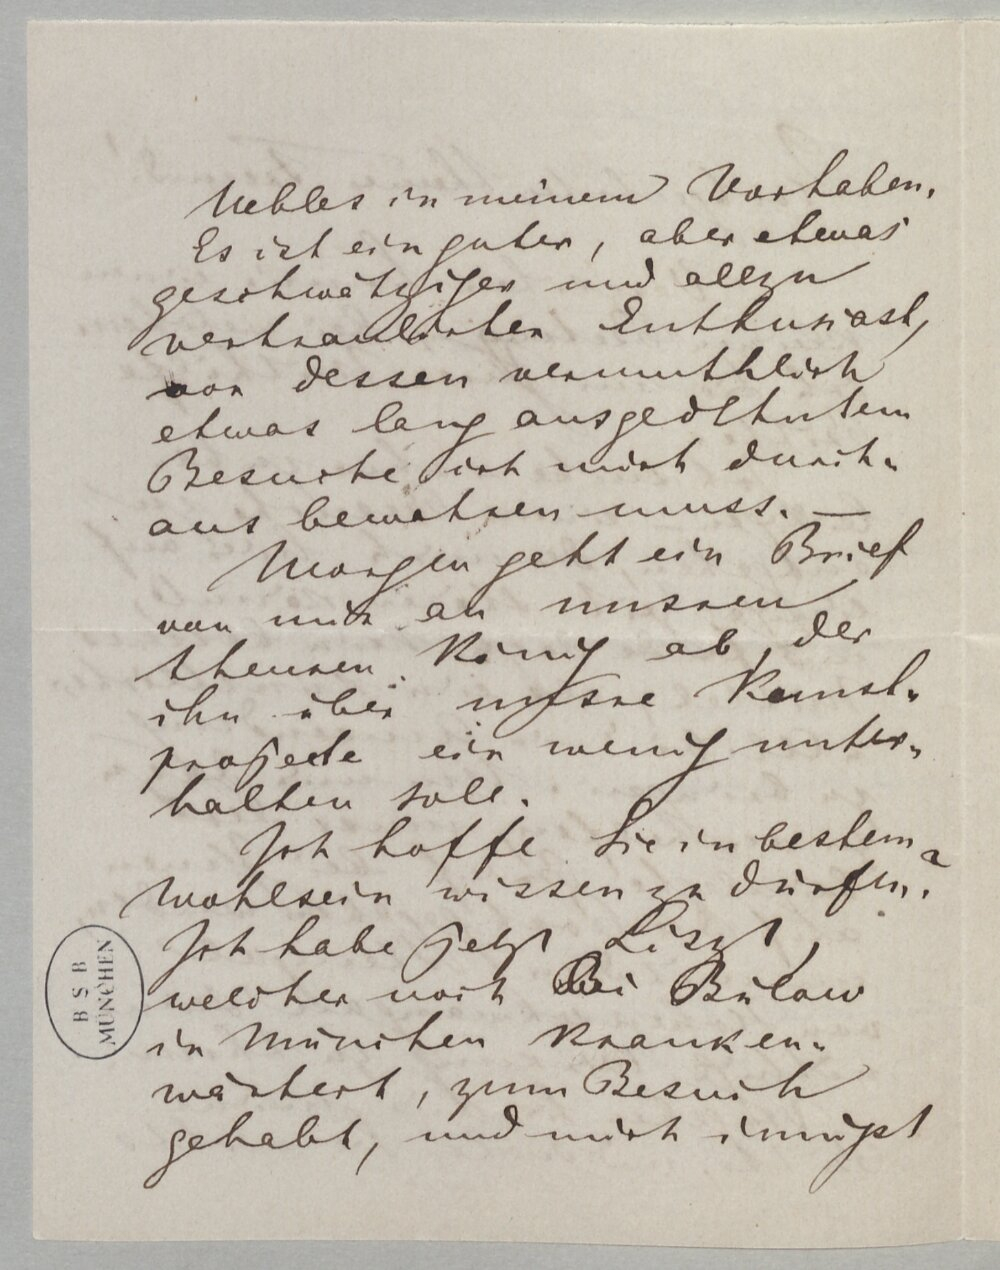 Uebles in meinem Vorhaben.
Es ist ein guter, aber etwas
geschwätziger und allzu
vertraulicher Enthusiast,
vor dessen vermuthlich
etwas lang ausgedehntem
Besuche ich mich durch-
aus bewahren muss. —
Morgen geht ein Brief
von mir an unsren
theuren König ab, der
ihn über unsre Kunst-
projecte ein wenig unter-
halten soll.
Ich hoffe Sie in bestem
Wohlsein wissen zu dürfen?
Ich habe jetzt Liszt,
welcher noch bei Bülow
in München kranken-
wächtert, zum Besuch
gehabt, und mich innigst
BSB
MÜNCHEN